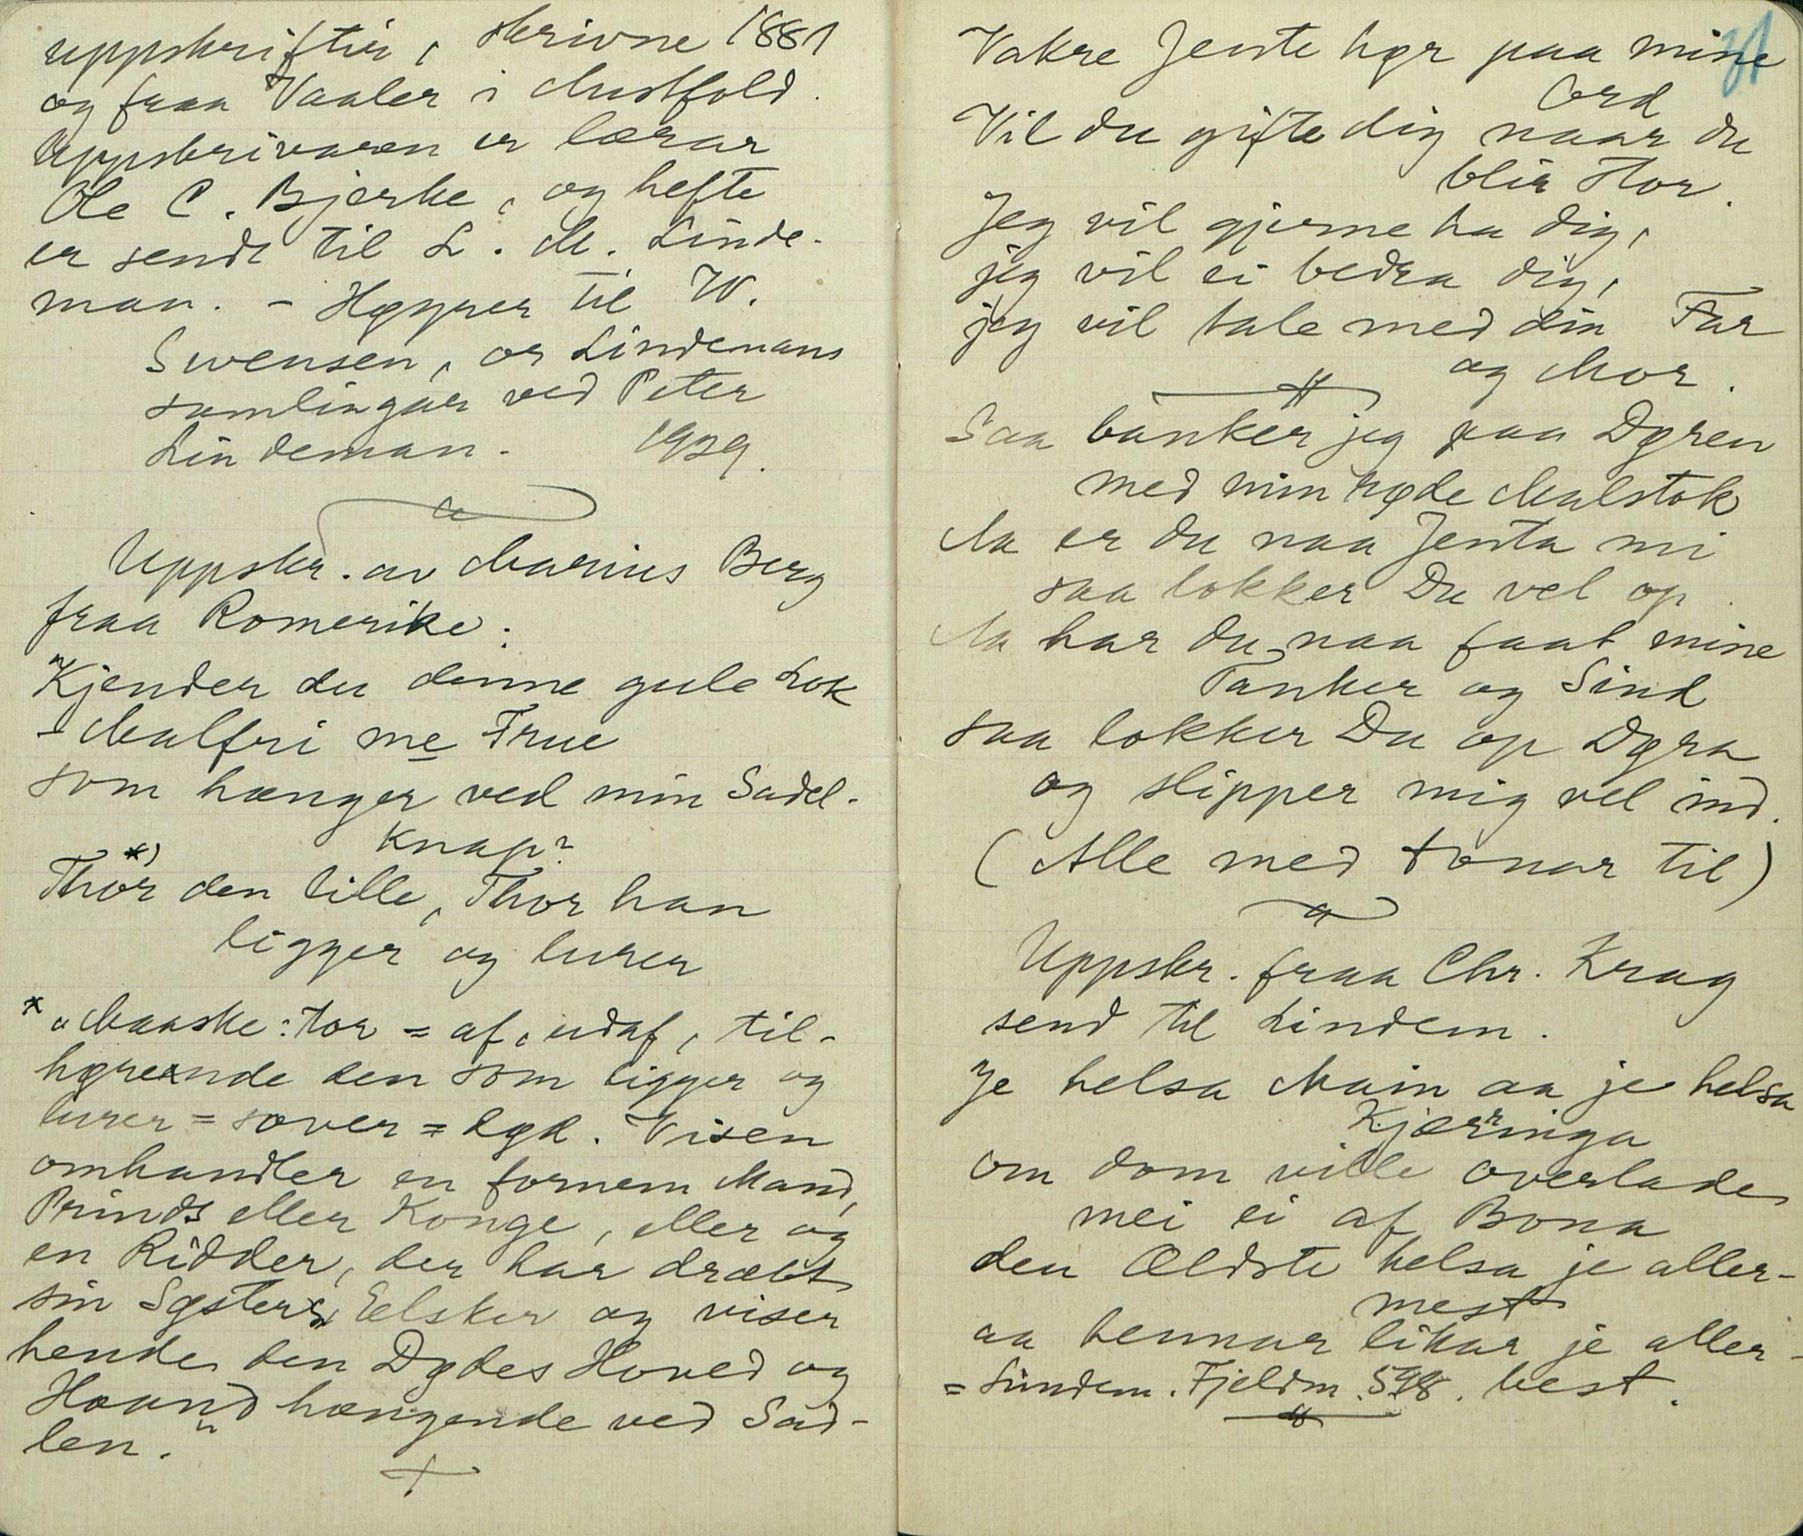 uppskrifter, skrivne 1881
og fraa Vaaler i Austfold.
Uppskrivaren er lærar
Ole C. Bjerke, og hefte
er sendt til L. M. Linde-
man. - Høyrer til W.
Swensen, or Lindemans
samlingar ved Peter
Lindeman. 1929.
Uppskr. av Marius Berg
fraa Romerike.
"Kjender du denne gule Lok
- Malfri me Frue
som hænger ved min Sadel-
knap?
Thor *) den lille, Thor han
ligger og lurer
* "Maaske: tor = af, udaf, til-
hørende den som ligger og
lurer = sover = død. Visen
omhandler en fornem Mand,
Prinds eller Konge, eller og
en Ridder, der har dræbt
sin Søsters Elsker og viser
hende den Dødes Hoved og
Haand hængende ved Sad-
len."
31
Vakre Jente hør paa mine
Ord
Vil du gifte dig naar du
blir stor.
Jeg vil gjerne ha dig,
jeg vil ei bedra dig,
jeg vil tale med din Far
og Mor.
Saa banker jeg paa Døren
med min røde Malstok
Aa er du naa Jenta mi
saa lokker Du vel op.
Aa har du naa faat mine
Tanker og Sind
saa lokker Du op Døra
og slipper mig vel ind.
(Alle med tonar til)
Uppskr. fraa Chr. Krag
send til Lindem.
Je helsa Main aa je helsa
Kjærringa
om dom ville overlade
mei ei af Bona
den Ældste helsa je aller-
mest
aa hennar likar je aller-
= Lindem. Fjeldm. 598. best.